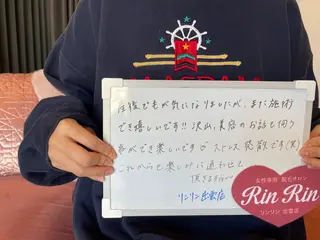 産後で毛が気になりましたが、また施術
でき嬉しいです!! 沢山美容のお話も伺う
事ができ楽しいですし ストレス発散です(笑)
これからも楽しみに通わせて
頂きます
リンリン出雲店
女性専用 脱毛サロン
Rin Rin
リンリン 出雲店